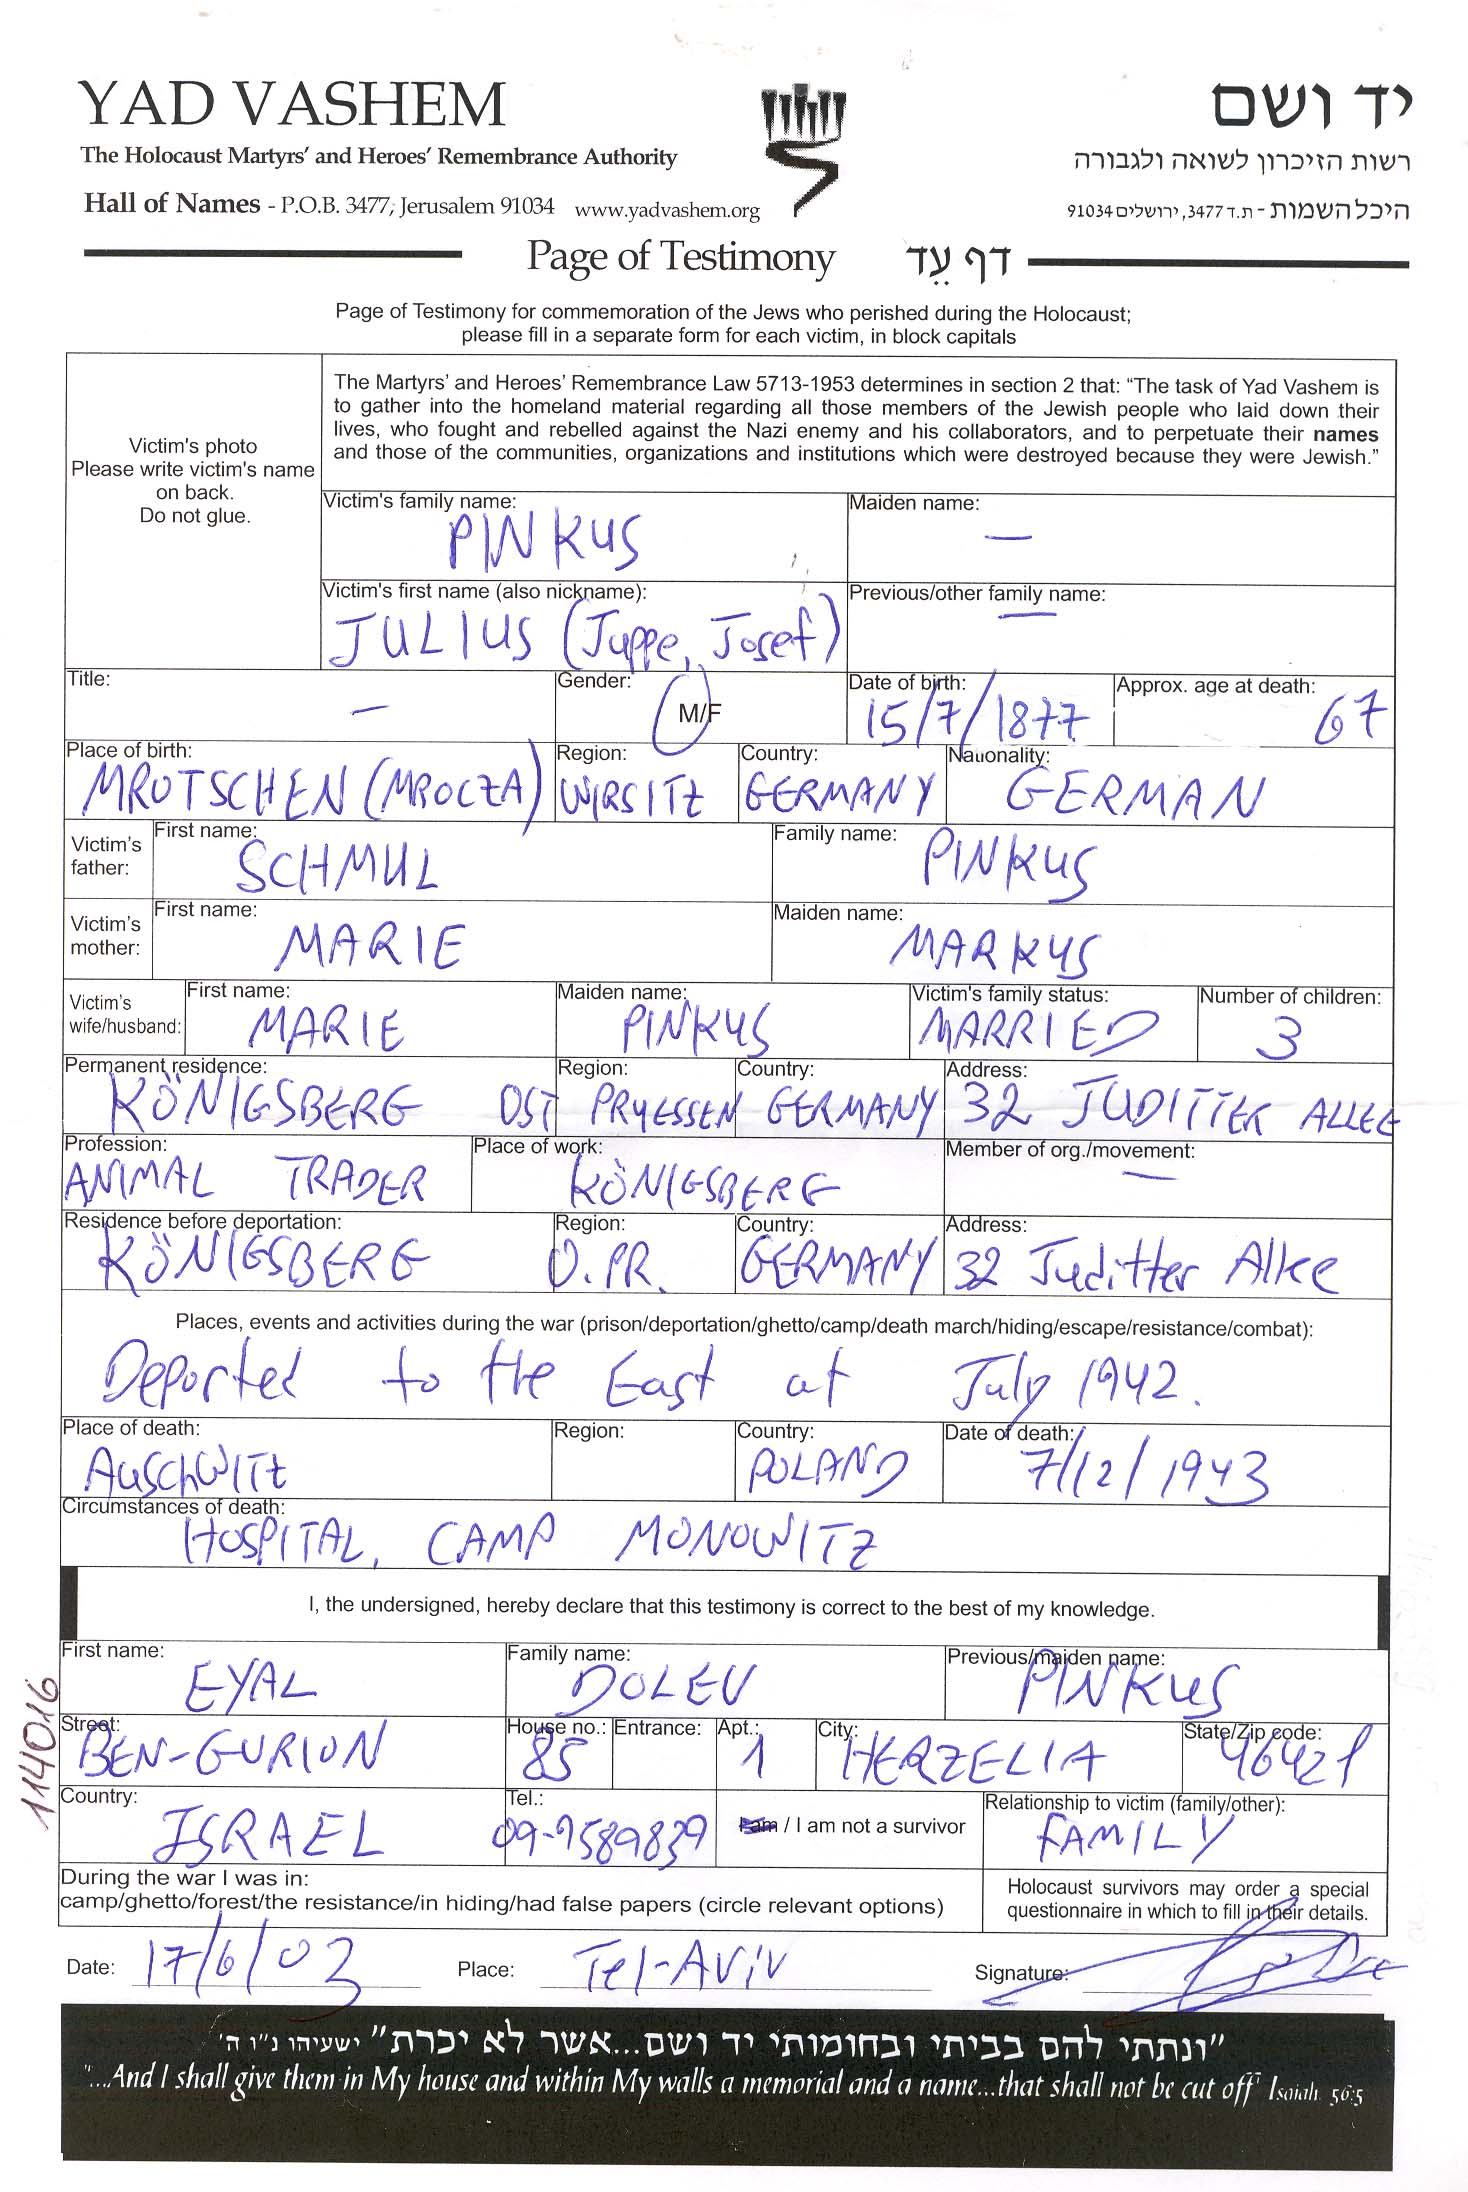 YAD VASHEM
יד ושם
The Holocaust Martyrs' and Heroes' Remembrance Authority
רשות הזיכרון לשואה ולגבורה
Hall of Names - P.O.B. 3477, Jerusalem 91034 www.yadvashem.org
היכל השמות - ת.ד 3477, ירושלים 91034
Page of Testimony דף עֵד
Page of Testimony for commemoration of the Jews who perished during the Holocaust;
please fill in a separate form for each victim, in block capitals
Victim's photo
Please write victim's name
on back.
Do not glue.
The Martyrs' and Heroes' Remembrance Law 5713-1953 determines in section 2 that: "The task of Yad Vashem is
to gather into the homeland material regarding all those members of the Jewish people who laid down their
lives, who fought and rebelled against the Nazi enemy and his collaborators, and to perpetuate their names
and those of the communities, organizations and institutions which were destroyed because they were Jewish."
Victim's family name: Maiden name:
PINKUS —
Victim's first name (also nickname): Previous/other family name:
JULIUS (Juppe, Josef) —
Title: Gender: Date of birth: Approx. age at death:
— M/F 15/7/1877 67
Place of birth: Region: Country: Nationality:
MROTSCHEN (MROCZA) WIRSITZ GERMANY GERMAN
Victim's father: First name: Family name:
SCHMUL PINKUS
Victim's mother: First name: Maiden name:
MARIE MARKUS
Victim's wife/husband: First name: Maiden name: Victim's family status: Number of children:
MARIE PINKUS MARRIED 3
Permanent residence: Region: Country: Address:
KÖNIGSBERG OST PRUESSEN GERMANY 32 JUDITTER ALLEE
Profession: Place of work: Member of org./movement:
ANIMAL TRADER KÖNIGSBERG —
Residence before deportation: Region: Country: Address:
KÖNIGSBERG O.PR. GERMANY 32 Juditter Allee
Places, events and activities during the war (prison/deportation/ghetto/camp/death march/hiding/escape/resistance/combat):
Deported to the East at July 1942.
Place of death: Region: Country: Date of death:
AuschWITZ POLAND 7/12/1943
Circumstances of death:
HOSPITAL, CAMP MONOWITZ
I, the undersigned, hereby declare that this testimony is correct to the best of my knowledge.
First name: Family name: Previous/maiden name:
EYAL DOLEV PINKUS
Street: House no.: Entrance: Apt.: City: State/Zip code:
BEN-GURION 85 1 HERZELIA 46421
Country: Tel.: / I am not a survivor Relationship to victim (family/other):
ISRAEL 09-9589839 FAMILY
During the war I was in:
camp/ghetto/forest/the resistance/in hiding/had false papers (circle relevant options)
Holocaust survivors may order a special
questionnaire in which to fill in their details.
Date: 17/6/03 Place: Tel-Aviv Signature:
114016
"ונתתי להם בביתי ובחומותי יד ושם...אשר לא יכרת" ישעיהו נ"ו ה'
"...And I shall give them in My house and within My walls a memorial and a name...that shall not be cut off" Isaiah 56:5